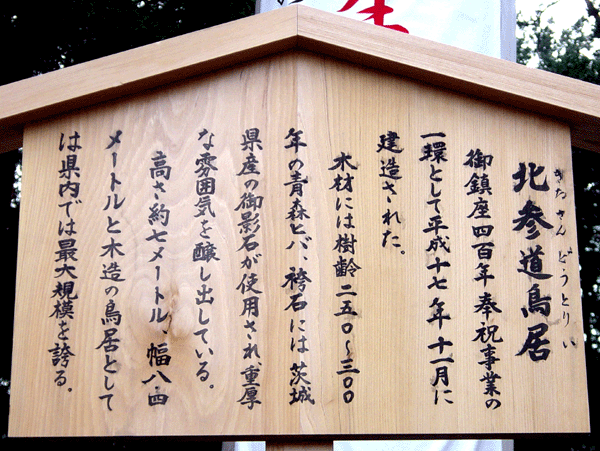 北参道鳥居
きたさんどうとりい
御鎮座四百年奉祝事業の
一環として平成十七年十一月に
建造された。
木材には樹齢二五〇〜三〇〇
年の青森ヒバ、袴石には茨城
県産の御影石が使用され重厚
な雰囲気を醸し出している。
高さ約七メートル、幅八・四
メートルと木造の鳥居として
は県内では最大規模を誇る。